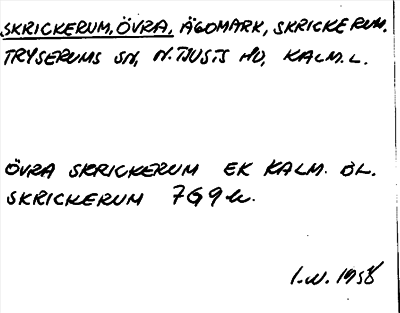 SKRICKERUM, ÖVRA, ÄGOMARK, SKRICKERUM.
TRYSERUMS SN, N. TJUSTS HD, KALM. L.
ÖVRA SKRICKERUM EK KALM. ÖL.
SKRICKERUM 7G9h.
I.W. 1958